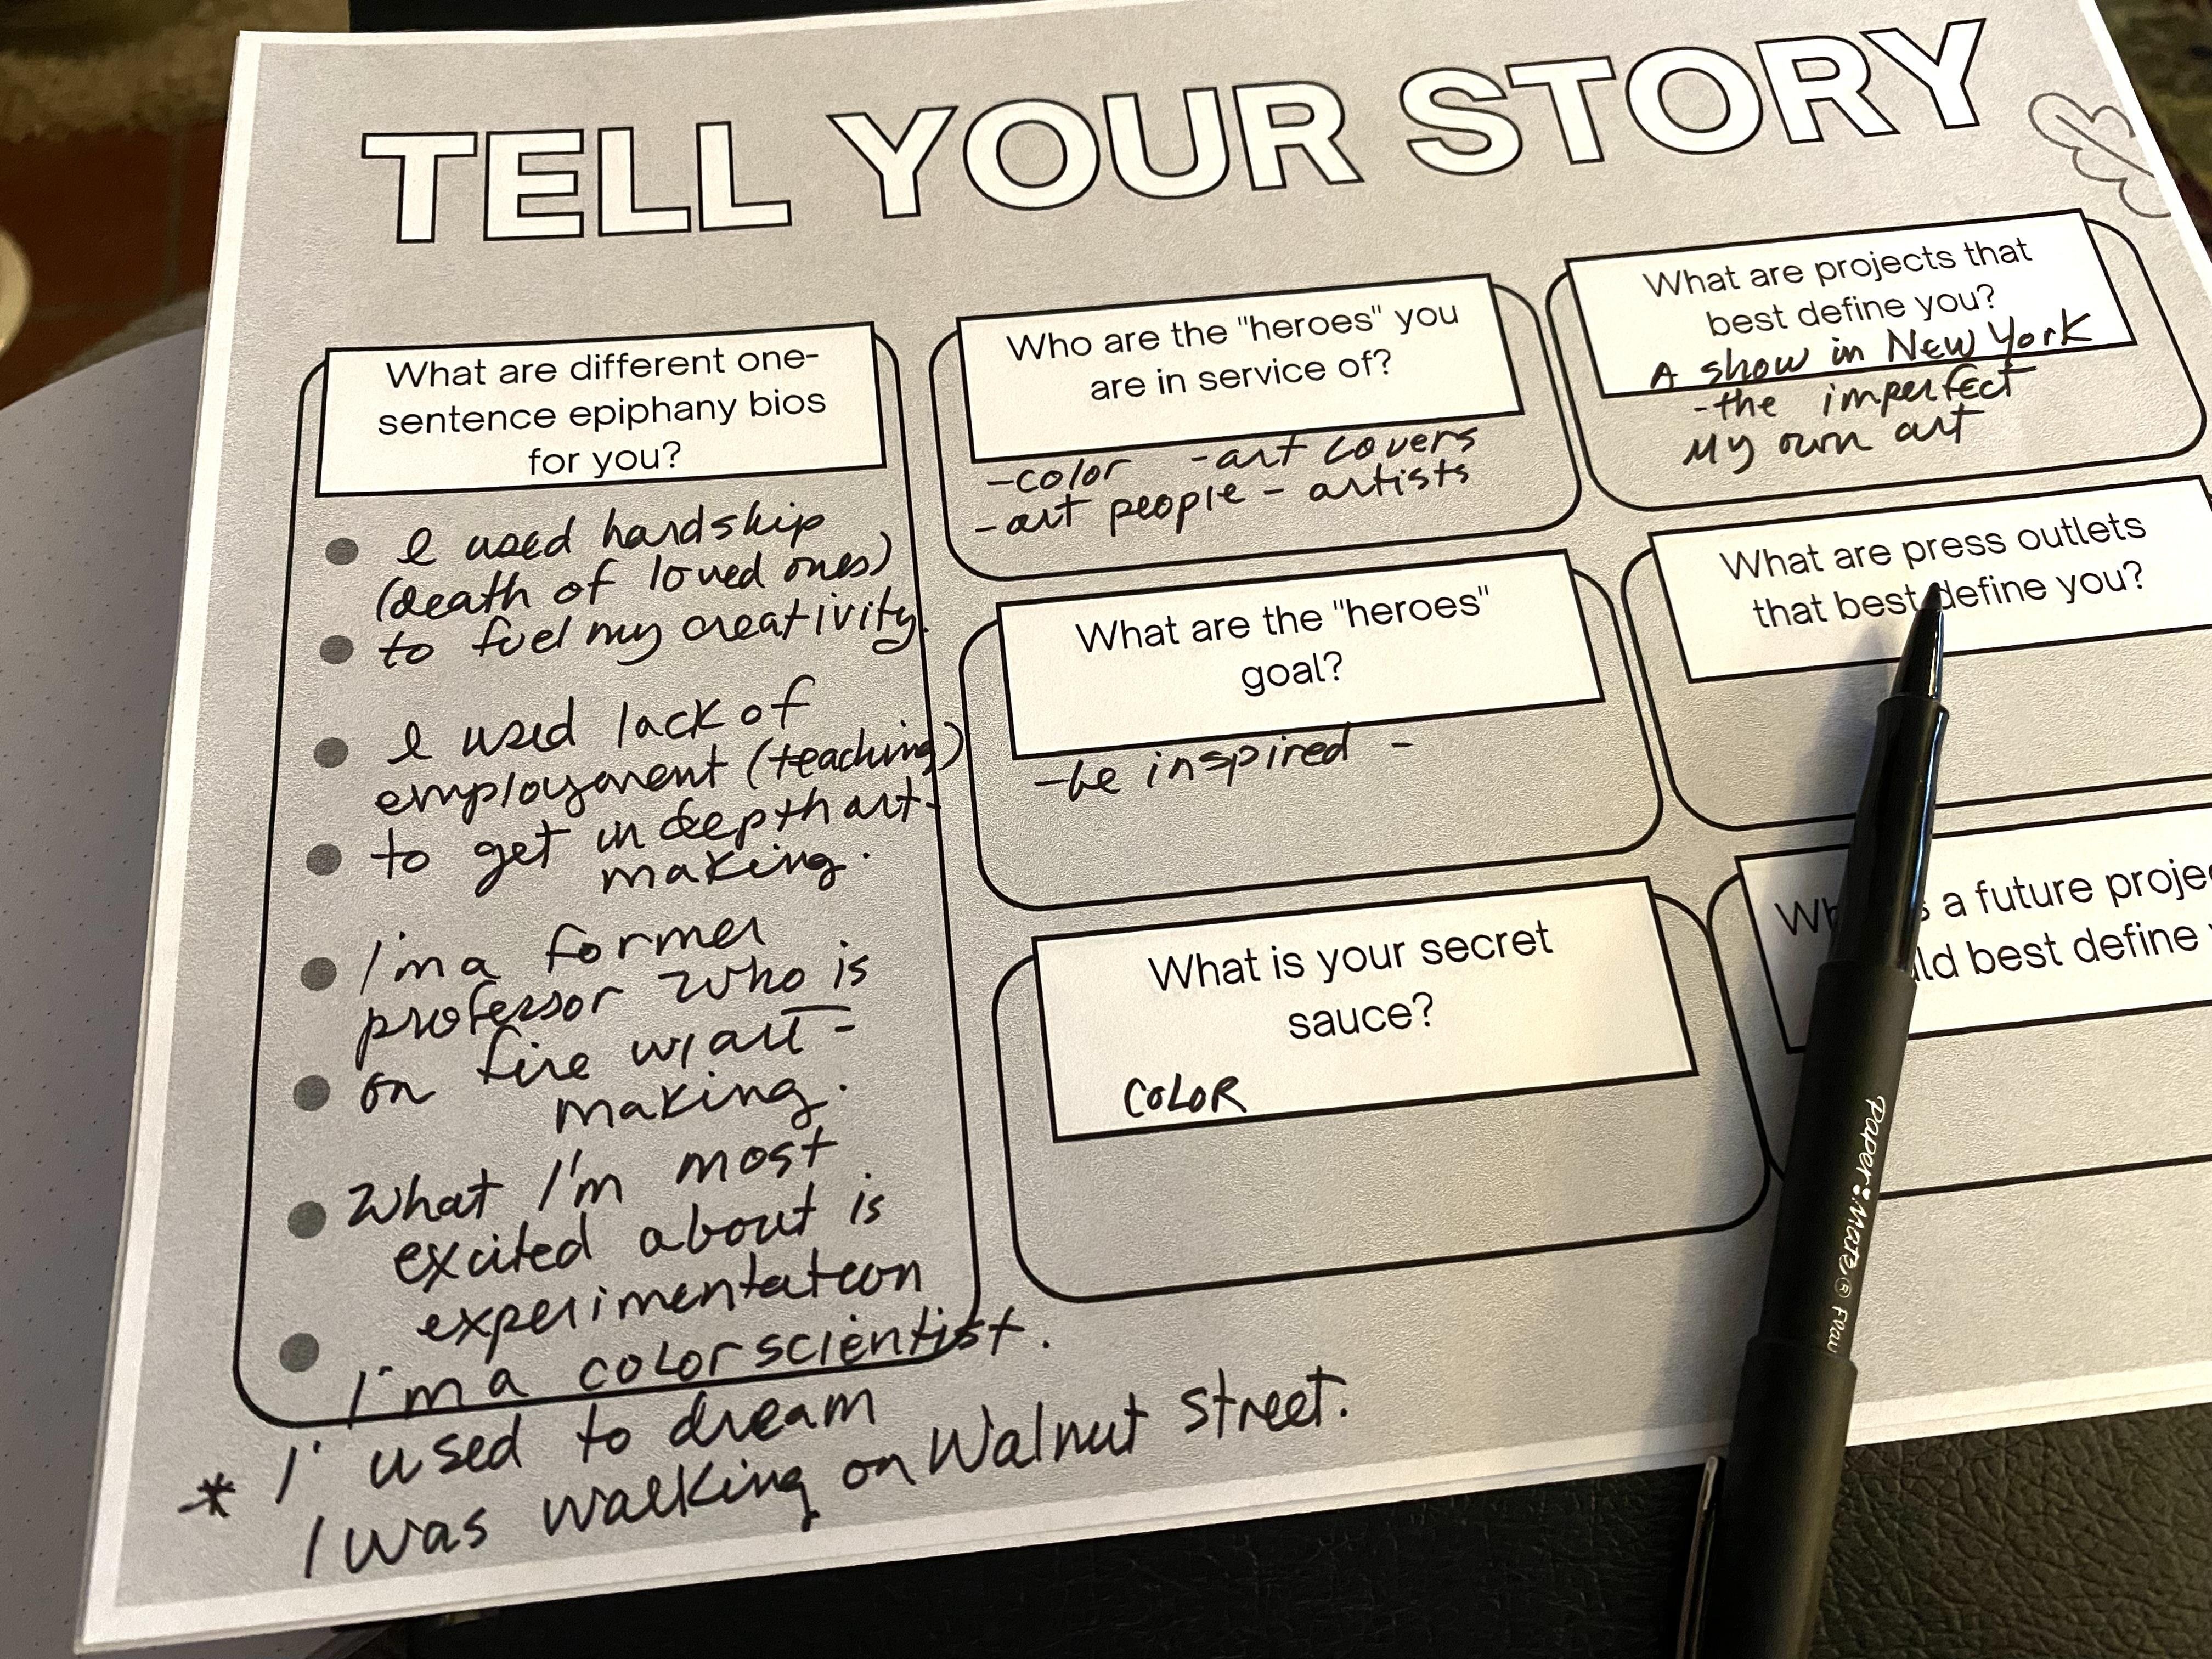 TELL YOUR STORY
What are different one-
sentence epiphany bios
for you?
I used hardship
(death of loved ones)
to fuel my creativity.
I used lack of
employment (teaching)
to get in depth art-
making.
I'm a former
professor who is
on fire w/art-
making.
What I'm most
excited about is
experimentation
I'm a color scientist.
* I used to dream
I was walking on Walnut Street.
Who are the "heroes" you
are in service of?
-color -art covers
-art people - artists
What are the "heroes"
goal?
-be inspired -
What is your secret
sauce?
COLOR
What are projects that
best define you?
A show in New York
-the imperfect
My own art
What are press outlets
that best define you?
a future
best define
Paper Mate ®